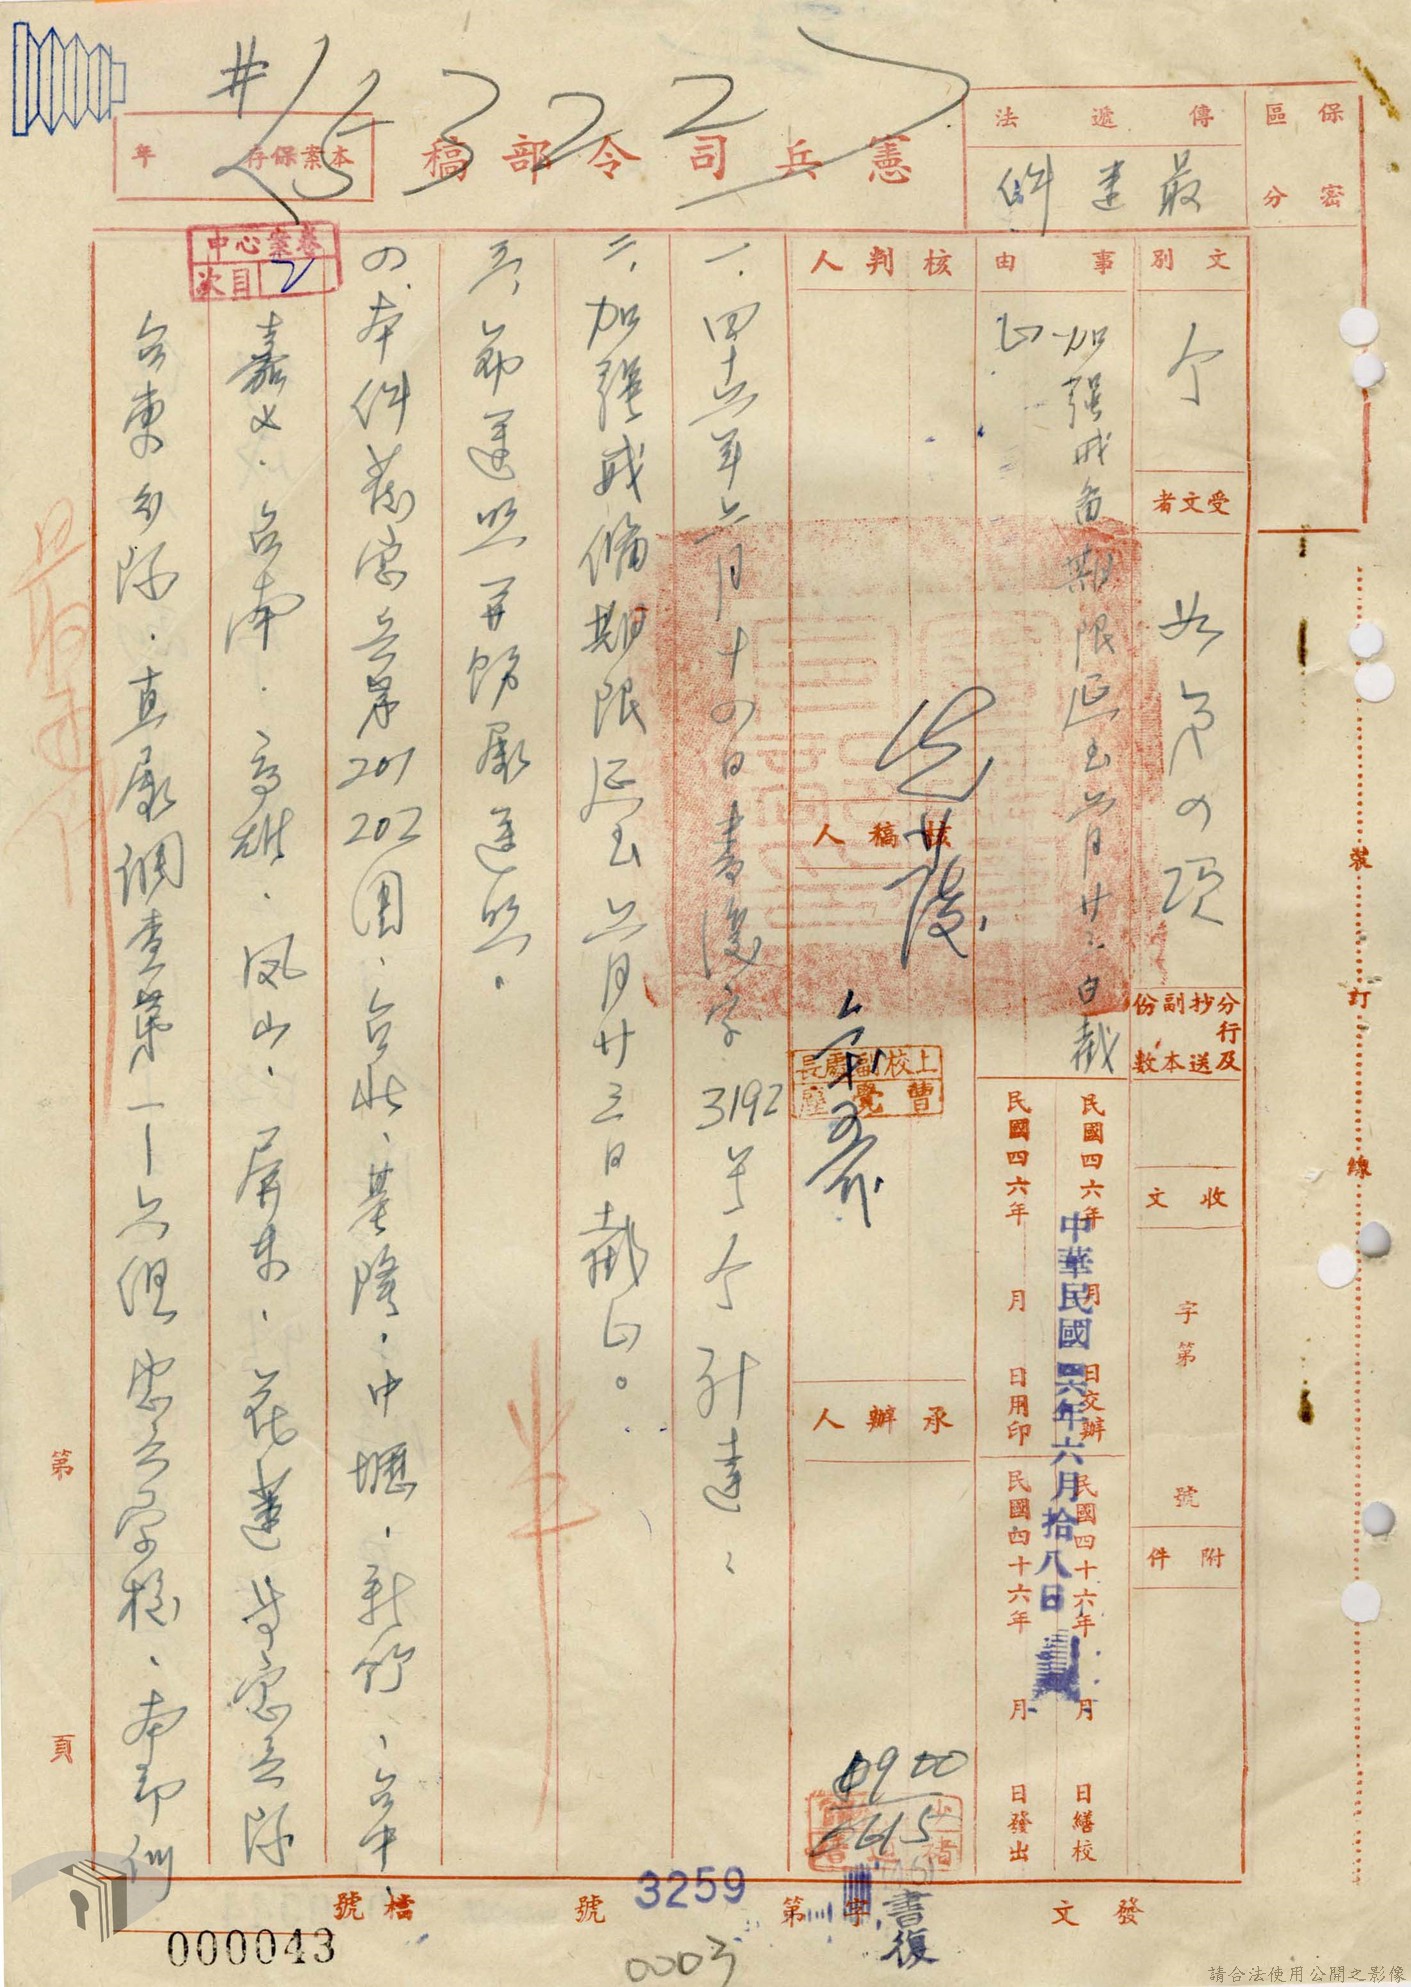 #15322
憲兵司令部稿
本案保存 年
保密區分
傳遞法
最速件
文別
令
受文者
如第四項
分行及抄送副本份數
收文
字第
號
附件
事由
加強戒备期限延至六月廿三日截
止
民國四六年 月 日交辦
民國四六年 月 日用印
民國四十六年 月 日繕校
民國四十六年 月 日發出
中華民國四六年六月拾八日
核判人
核稿人
承辦人
上校副處長
曹覺
0900
6/15
一、四十六年六月十四日書復字3192号令計達、
二、加强戒備期限延至六月廿三日截止。
三、希遵照并飭屬遵照。
四、本件發憲兵第201 202團、台北、基隆、中壢、新竹、台中、
嘉义、台南、高雄、凤山、屏東、花蓮等憲兵隊
台東分隊、直屬調查第一—六組憲兵學校、本部
中心案卷
次目 2
最速件
裝 訂 線
第 頁
發文
(46)書復
字第 3259 號
檔號
000043
0003
請合法使用公開之影像